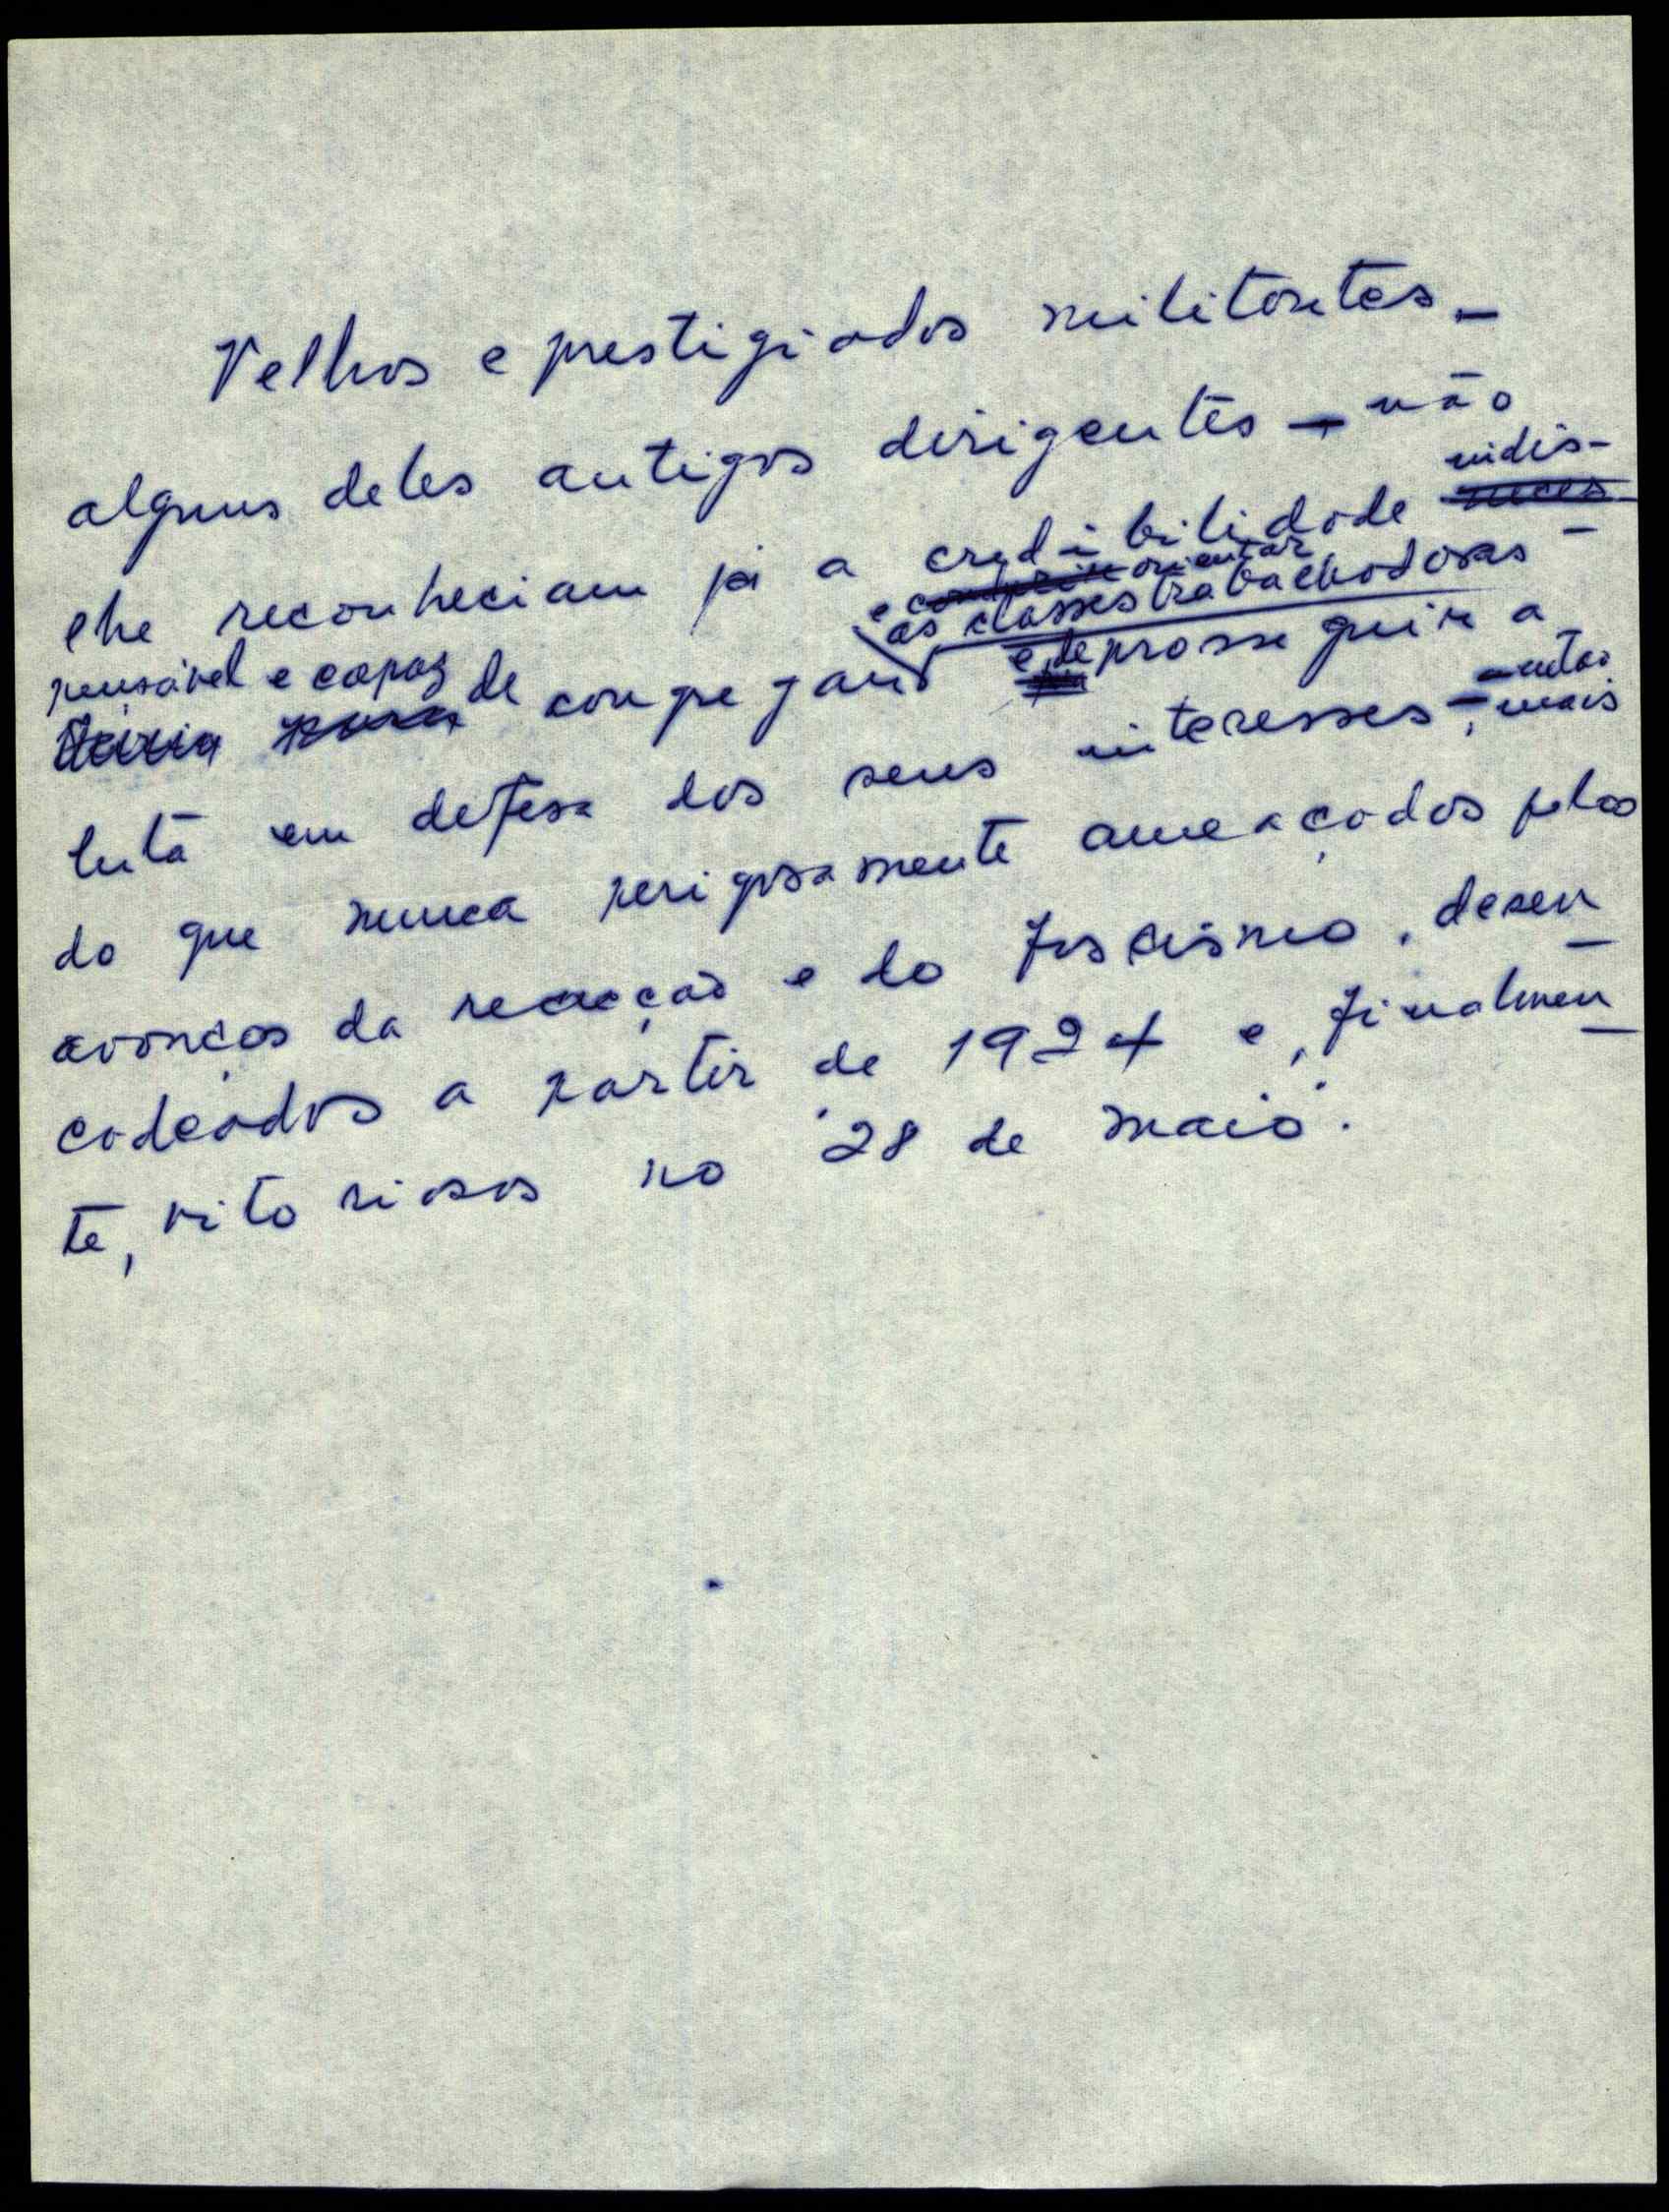 Velhos e prestigiados militantes –
alguns deles antigos dirigentes – não
indis-
lhe reconheciam já a credibilidade neces-
e conduzir orientar
as classes trabalhadoras
pensável e capaz de congregar e de prosseguir a
sária para
luta em defesa dos seus interesses –, então
mais
do que nunca perigosamente ameaçados pelos
avanços da reacção e do fascismo, desen-
cadeados a partir de 1924 e, finalmen-
te, vitoriosos no "28 de maio".